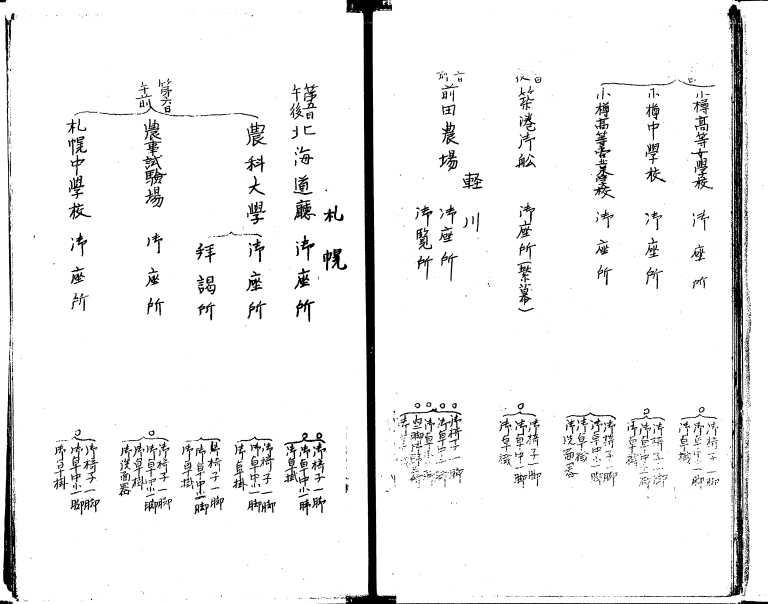 小樽高等女学校 御座所
御椅子一脚
御卓中小一脚
御卓掛
小樽中学校 御座所
御椅子一脚
御卓中小一脚
御卓掛
小樽高等商業学校 御座所
御椅子一脚
御卓中小一脚
御卓掛
御洗面器
築港御船 御座所(繋幕)
御椅子一脚
御卓中小一脚
御卓掛
軽川
前田農場 御座所
御覧所
御椅子一脚
御卓中小一脚
札幌
第五日
午後
北海道廳 御座所
御椅子一脚
御卓中小一脚
御卓掛
第六日
午前
農科大学 御座所
御椅子一脚
御卓中小一脚
御卓掛
拝謁所
御椅子一脚
御卓中小一脚
御卓掛
農事試験場 御座所
御椅子一脚
御卓中小一脚
御卓掛
御洗面器
札幌中学校 御座所
御椅子一脚
御卓中小一脚
御卓掛